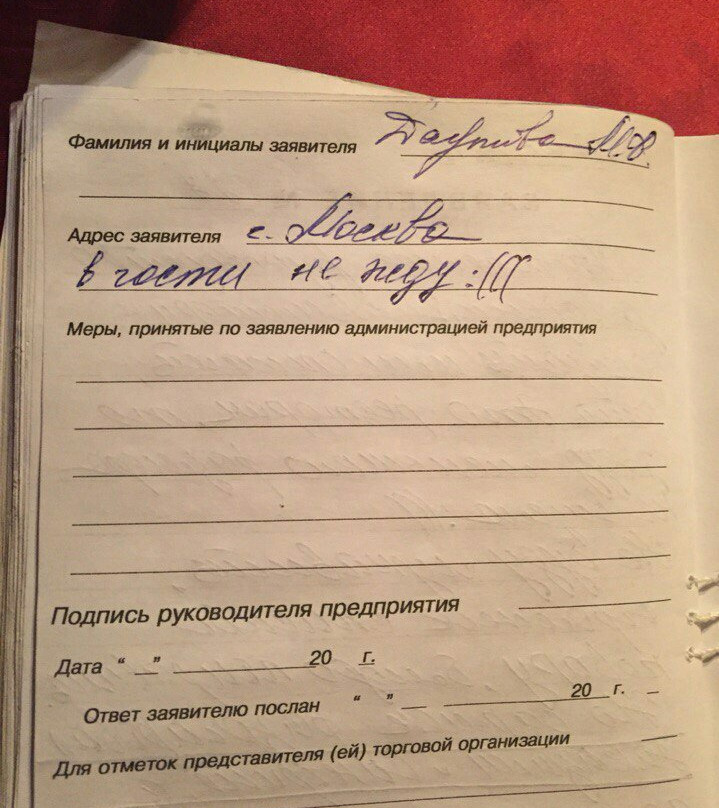 Фамилия и инициалы заявителя М.В.
Адрес заявителя г. Москва
в гости не жду :(((
Меры, принятые по заявлению администрацией предприятия
Подпись руководителя предприятия
Дата “ __ ” ________ 20 г.
Ответ заявителю послан “ ” __ ________ 20 __ г.
Для отметок представителя (ей) торговой организации